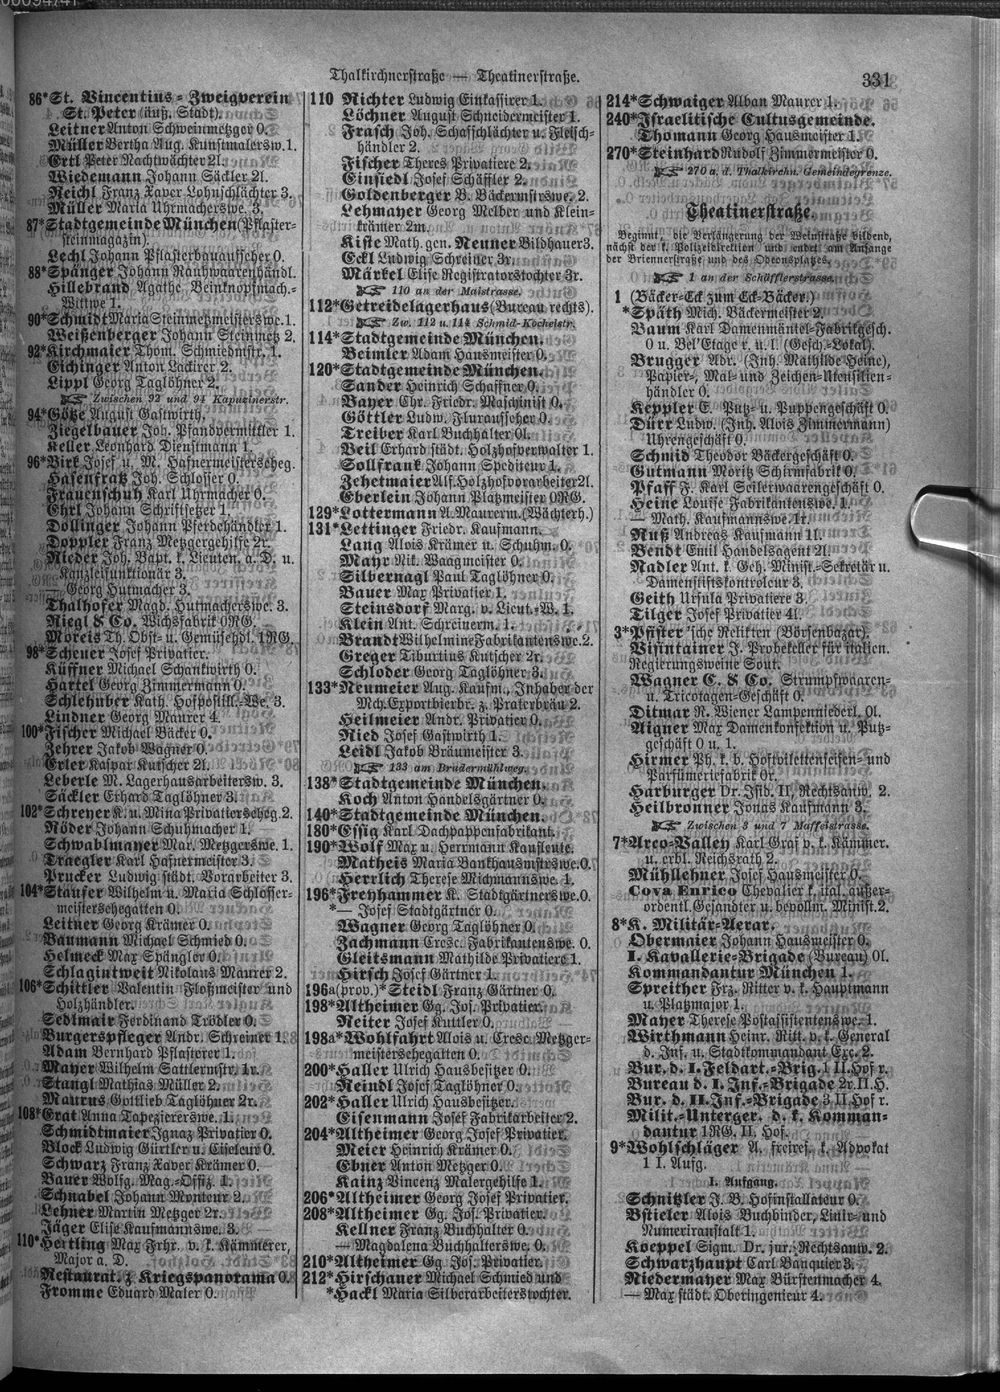 Thalkirchnerstraße — Theatinerstraße.
331
86*St. Vincentius-Zweigverein
St. Peter (äuß. Stadt).
Leitner Anton Schweinmetzger 0.
Müller Bertha Aug. Kunstmalersw. 1.
Ertl Peter Nachtwächter 2l.
Wiedemann Johann Säckler 2l.
Reichl Franz Xaver Lohnschlächter 3.
Müller Maria Uhrmacherswe. 3.
87*Stadtgemeinde München (Pflaster-
steinmagazin).
Lechl Johann Pflasterbauaufseher 0.
88*Spänger Johann Rauhwaarenhändl.
Hillebrand Agathe Beinknopfmach.-
Wittwe 1.
90*Schmidt Maria Steinmetzmeisterswe. 1.
Weißenberger Johann Steinmetz 2.
92*Kirchmaier Thom. Schmiedmstr. 1.
Eichinger Anton Lackirer 2.
Lippl Georg Taglöhner 2.
Zwischen 92 und 94 Kapuzinerstr.
94*Götze August Gastwirth.
Ziegelbauer Joh. Pfandvermittler 1.
Keller Leonhard Dienstmann 1.
96*Birk Josef u. M. Hafnermeisterseheg.
Hasenfratz Joh. Schlosser 0.
Frauenschuh Karl Uhrmacher 0.
Ehrl Johann Schriftsetzer 1.
Dollinger Johann Pferdehändler 1.
Doppler Franz Metzgergehilfe 2r.
Rieder Joh. Bapt. k. Lieuten. a. D. u.
Kanzleifunktionär 3.
— Georg Hutmacher 3.
Thalhofer Magd. Hutmacherswe. 3.
Riegl & Co. Wichsfabrik 0RG.
Moreis Th. Obst- u. Gemüsehdl. 1RG.
98*Scheuer Josef Privatier.
Küffner Michael Schankwirth 0.
Härtel Georg Zimmermann 0.
Schlehuber Kath. Hofpostill.-We. 3.
Lindner Georg Maurer 4.
100*Fischer Michael Bäcker 0.
Zehrer Jakob Wagner 0.
Erler Kaspar Kutscher 2l.
Leberle M. Lagerhausarbeitersw. 3.
Säckler Erhard Taglöhner 3.
102*Schreyer K. u. Mina Privatierseheg. 2.
Röder Johann Schuhmacher 1.
Schwablmayer Mar. Metzgerswe. 1.
Traegler Karl Hafnermeister 3.
Prucker Ludwig städt. Vorarbeiter 3.
104*Staufer Wilhelm u. Maria Schlosser-
meistersehegatten 0.
Leitner Georg Krämer 0.
Baumann Michael Schmied 0.
Helmeck Max Spängler 0.
Schlagintweit Nikolaus Maurer 2.
106*Schittler Valentin Floßmeister und
Holzhändler.
Sedlmair Ferdinand Trödler 0.
Burgerspfleger Andr. Schreiner 1.
Adam Bernhard Pflasterer 1.
Mayer Wilhelm Sattlermstr. 1r.
Stangl Mathias Müller 2.
Maurus Gottlieb Taglöhner 2r.
108*Erat Anna Tapeziererswe. 1.
Schmidtmaier Ignaz Privatier 0.
Block Ludwig Gürtler u. Ciseleur 0.
Schwarz Franz Xaver Krämer 0.
Bauer Wolfg. Mag.-Offiz. 1.
Schnabel Johann Monteur 2.
Lehner Martin Metzger 2r.
Jäger Elise Kaufmannswe. 3.
110*Hertling Max Frhr. v. k. Kämmerer,
Major a. D.
Restaurat. z. Kriegspanorama 0.
Fromme Eduard Maler 0.
110 Richter Ludwig Einkassirer 1.
Löchner August Schneidermeister 1.
Frasch Joh. Schafschlächter u. Fleisch-
händler 2.
Fischer Theres Privatiere 2.
Einsiedl Josef Schäffler 2.
Goldenberger B. Bäckermstrswe. 2.
Lehmayer Georg Melber und Klein-
krämer 2m.
Kiste Math. gen. Neuner Bildhauer 3.
Eckl Ludwig Schreiner 3r.
Märkel Elise Registratorstochter 3r.
110 an der Maistrasse.
112*Getreidelagerhaus (Bureau rechts).
Zw. 112 u. 114 Schmid-Kochelstr.
114*Stadtgemeinde München.
Beimler Adam Hausmeister 0.
120*Stadtgemeinde München.
Sander Heinrich Schaffner 0.
Bayer Chr. Friedr. Maschinist 0.
Göttler Ludw. Fluraufseher 0.
Treiber Karl Buchhalter 0l.
Veil Erhard städt. Holzhofverwalter 1.
Sollfrank Johann Spediteur 1.
Zehetmaier Alf. Holzhofvorarbeiter 2l.
Eberlein Johann Platzmeister 0RG.
129*Lottermann A. Maurerm. (Wächterh.)
131*Lettinger Friedr. Kaufmann.
Lang Alois Krämer u. Schuhm. 0.
Mayr Nik. Waagmeister 0.
Silbernagl Paul Taglöhner 0.
Bauer Max Privatier 1.
Steinsdorf Marg. v. Lieut.-W. 1.
Klein Ant. Schreinerm. 1.
Brandt Wilhelmine Fabrikantenswe. 2.
Greger Tiburtius Kutscher 2r.
Schloder Georg Taglöhner 3.
133*Neumeier Aug. Kaufm., Inhaber der
Mch. Exportbierbr. z. Praterbräu 2.
Heilmeier Andr. Privatier 0.
Ried Josef Gastwirth 1.
Leidl Jakob Bräumeister 3.
133 am Brudermühlweg.
138*Stadtgemeinde München.
Koch Anton Handelsgärtner 0.
140*Stadtgemeinde München.
180*Essig Karl Dachpappenfabrikant.
190*Wolf Max u. Herrmann Kaufleute.
Matheis Maria Bankhausmstrswe. 0.
Herrlich Therese Milchmannswe. 1.
196*Freyhammer K. Stadtgärtnerswe. 0.
*— Josef Stadtgärtner 0.
Wagner Georg Taglöhner 0.
Zachmann Cresc. Fabrikantenswe. 0.
Gleitsmann Mathilde Privatiere 1.
Hirsch Josef Gärtner 1.
196a (prov.)*Steidl Franz Gärtner 0.
198*Altheimer Gg. Jos. Privatier.
Reiter Josef Kuttler 0.
198a*Wohlfahrt Alois u. Cresc. Metzger-
meistersehegatten 0.
200*Haller Ulrich Hausbesitzer 0.
Reindl Josef Taglöhner 0.
202*Haller Ulrich Hausbesitzer.
Eisenmann Josef Fabrikarbeiter 2.
204*Altheimer Georg Josef Privatier.
Meier Heinrich Krämer 0.
Ebner Anton Metzger 0.
Kainz Vincenz Malergehilfe 1.
206*Altheimer Georg Josef Privatier.
208*Altheimer Gg. Jos. Privatier.
Kellner Franz Buchhalter 0.
— Magdalena Buchhalterswe. 0.
210*Altheimer Gg. Jos. Privatier.
212*Hirschauer Michael Schmied und
*Hackl Maria Silberarbeiterstochter.
214*Schwaiger Alban Maurer 1.
240*Israelitische Cultusgemeinde.
Thomann Georg Hausmeister 1.
270*Steinhard Rudolf Zimmermeister 0.
270 a. d. Thalkirchn. Gemeindegrenze.
Theatinerstraße.
Beginnt, die Verlängerung der Weinstraße bildend,
nächst der k. Polizeidirektion und endet am Anfange
der Briennerstraße und des Odeonsplatzes.
1 an der Schäfflerstrasse.
1 (Bäcker-Eck zum Eck-Bäcker.)
*Späth Mich. Bäckermeister 2.
Baum Karl Damenmäntel-Fabrikgesch.
0 u. Bel'Etage r. u. l. (Gesch.-Lokal).
Brugger Adr. (Inh. Mathilde Heine),
Papier-, Mal- und Zeichen-Utensilien-
händler 0.
Keppler E. Putz- u. Puppengeschäft 0.
Dürr Ludw. (Inh. Alois Zimmermann)
Uhrengeschäft 0.
Schmid Theodor Bäckergeschäft 0.
Gutmann Moritz Schirmfabrik 0.
Pfaff F. Karl Seilerwaarengeschäft 0.
Heine Louise Fabrikantenswe. 1.
— Math. Kaufmannswe. 1r.
Ruß Andreas Kaufmann 1l.
Bendt Emil Handelsagent 2l.
Nadler Ant. k. Geh. Minist.-Sekretär u.
Damenstiftskontroleur 3.
Geith Ursula Privatiere 3.
Tilger Josef Privatier 4l.
3*Pfister'sche Relikten (Börsenbazar).
Visintainer J. Probekeller für italien.
Regierungsweine Sout.
Wagner C. & Co. Strumpfwaaren-
u. Tricotagen-Geschäft 0.
Ditmar R. Wiener Lampenniederl. 0l.
Aigner Max Damenkonfektion u. Putz-
geschäft 0 u. 1.
Hirmer Ph. k. b. Hoftoilettenseifen- und
Parfümeriefabrik 0r.
Harburger Dr. Isid. II, Rechtsanw. 2.
Heilbronner Jonas Kaufmann 3.
Zwischen 3 und 7 Maffeistrasse.
7*Arco-Valley Karl Graf v. k. Kämmer.
u. erbl. Reichsrath 2.
Mühllehner Josef Hausmeister 0.
Cova Enrico Chevalier k. ital. außer-
ordentl. Gesandter u. bevollm. Minist. 2.
8*K. Militär-Aerar.
Obermaier Johann Hausmeister 0.
I. Kavallerie-Brigade (Bureau) 0l.
Kommandantur München 1.
Spreither Frz. Ritter v. k. Hauptmann
u. Platzmajor 1.
Mayer Therese Postassistentenswe. 1.
Wirthmann Heinr. Ritt. v. k. General
d. Inf. u. Stadtkommandant Exc. 2.
Bur. d. I. Feldart.-Brig. 1 II. Hof r.
Bureau d. I. Inf.-Brigade 2r. II. H.
Bur. d. II. Inf.-Brigade 3 II. Hof r.
Milit.-Unterger. d. k. Komman-
dantur 1RG. II. Hof.
9*Wohlschläger A. freires. k. Advokat
1 I. Aufg.
I. Aufgang.
Schnitzler J. B. Hofinstallateur 0.
Bstieler Alois Buchbinder, Linir- und
Numeriranstalt 1.
Koeppel Sigm. Dr. jur. Rechtsanw. 2.
Schwarzhaupt Carl Banquier 3.
Niedermayer Max Bürstenmacher 4.
— Max städt. Oberingenieur 4.